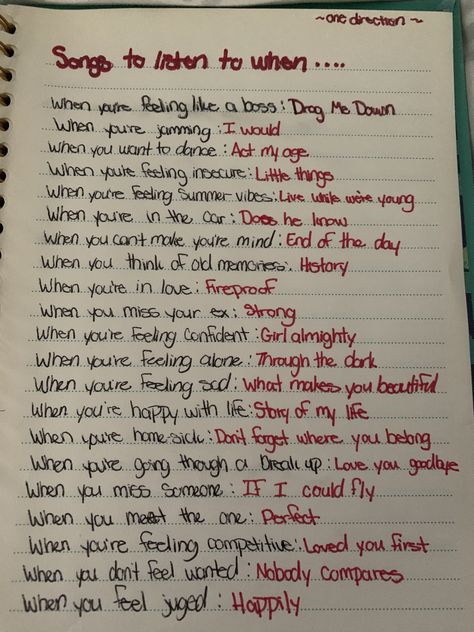 ~one direction~
Songs to listen to when ....
When you're feeling like a boss: Drag Me Down
When you're jamming: I would
When you want to dance: Act my age
When you're feeling insecure: Little things
When you're feeling summer vibes: Live while we're young
When you're in the car: Does he know
When you can't make you're mind: End of the day
When you think of old memories: History
When you're in love: Fireproof
When you miss your ex: Strong
When you're feeling confident: Girl almighty
When you're feeling alone: Through the dark
When you're feeling sad: What makes you beautiful
When you're happy with life: Story of my life
When you're home-sick: Don't forget where you belong
When you're going through a break up: Love you goodbye
When you miss someone: If I could fly
When you meet the one: Perfect
When you're feeling competitive: Loved you first
When you don't feel wanted: Nobody compares
When you feel juged: Happily